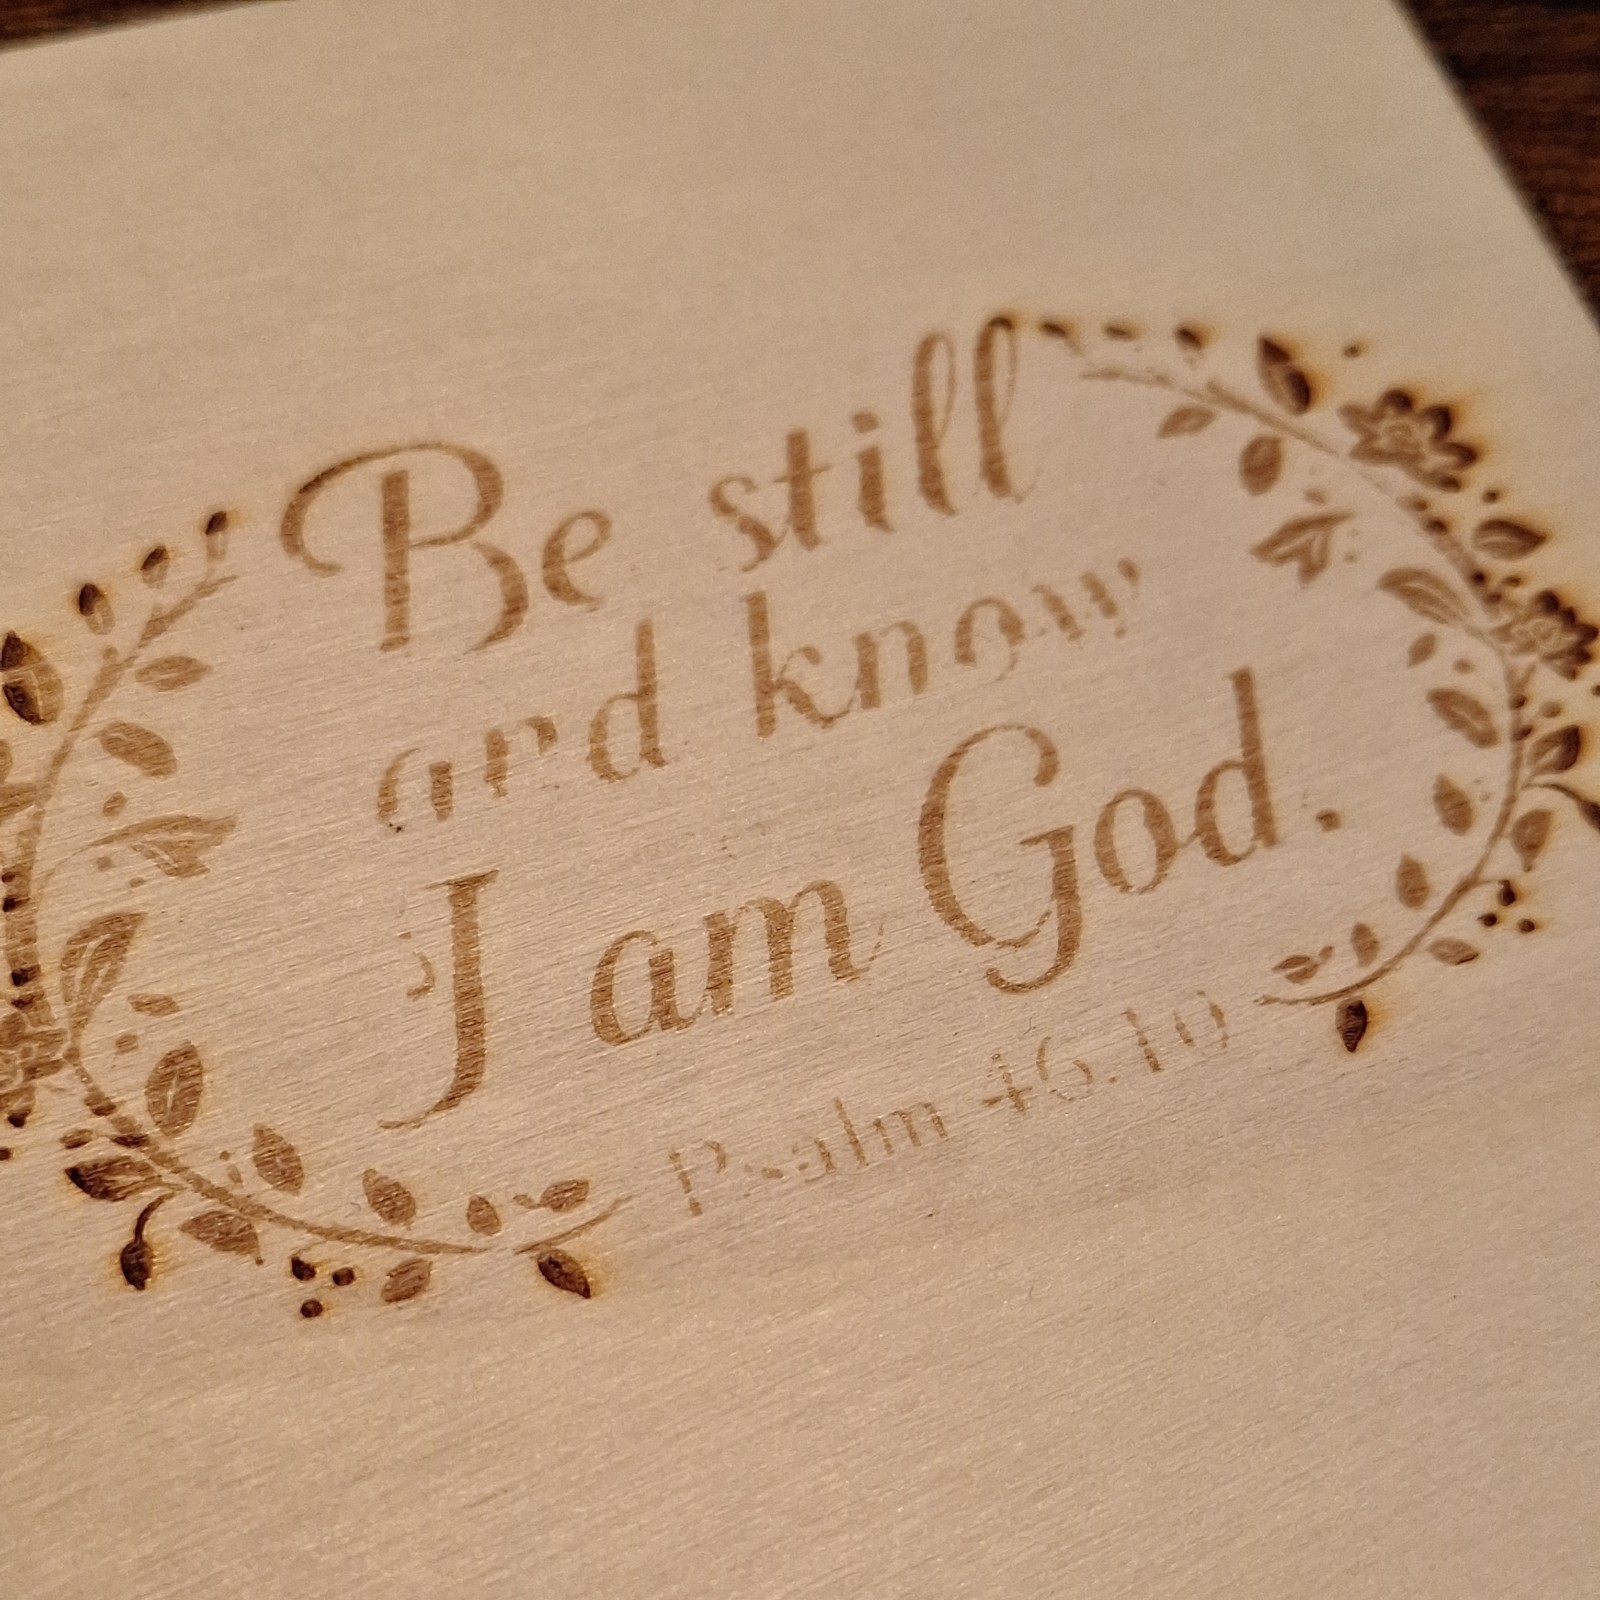 Be still
and know
I am God.
Psalm 46:10